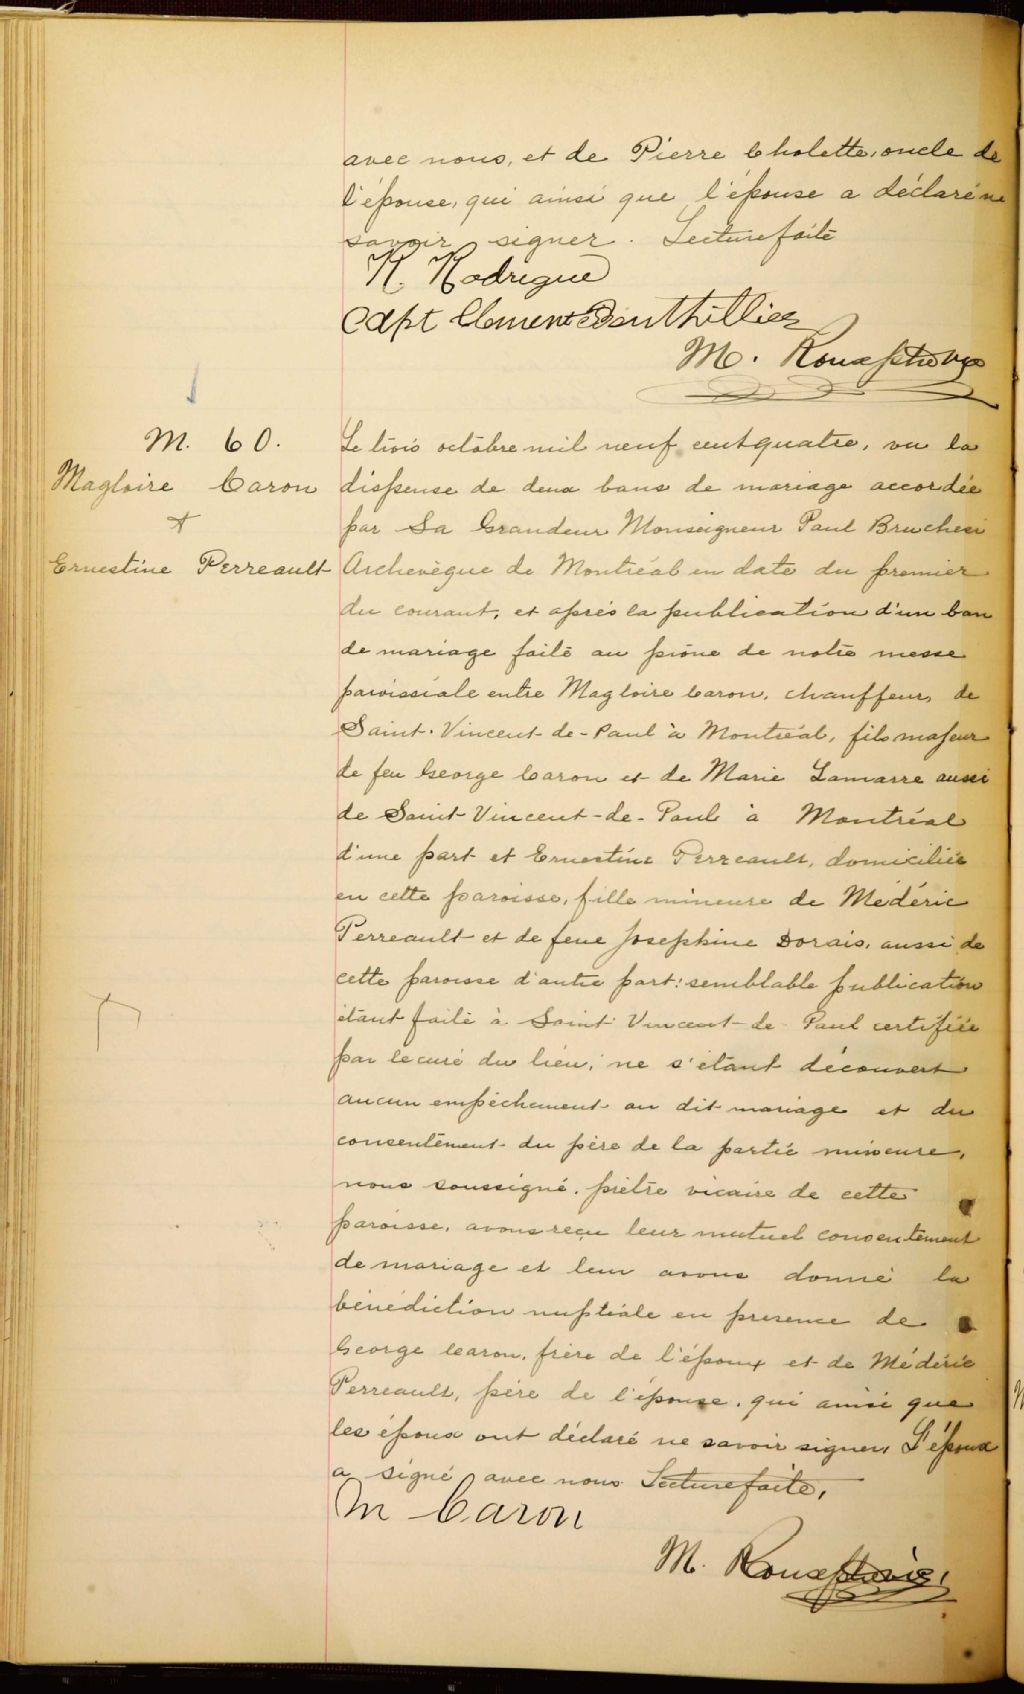 avec nous, et de Pierre Cholette, oncle de
l'épouse, qui ainsi que l'épouse a déclaré ne
savoir signer. Lecture faite
R. Rodrigue
Capt Clement
M. Roux ptre vic
M. 60.
Magloire Caron
+
Ernestine Perreault
Le trois octobre mil neuf cent quatre, vu la
dispense de deux bans de mariage accordée
par Sa Grandeur Monseigneur Paul Bruchesi
Archevêque de Montréal en date du premier
du courant, et après la publication d'un ban
de mariage faite au prône de notre messe
paroissiale entre Magloire Caron, chauffeur, de
Saint-Vincent-de-Paul à Montréal, fils majeur
de feu George Caron et de Marie Lamarre aussi
de Saint-Vincent-de-Paul à Montréal
d'une part et Ernestine Perreault, domiciliée
en cette paroisse, fille mineure de Médéric
Perreault et de feue Josephine Dorais, aussi de
cette paroisse d'autre part: semblable publication
étant faite à Saint Vincent-de Paul certifiée
par le curé du lieu; ne s'étant découvert
aucun empêchement au dit mariage et du
consentement du père de la partie mineure,
nous soussigné, prêtre vicaire de cette
paroisse, avons reçu leur mutuel consentement
de mariage et leur avons donné la
bénédiction nuptiale en presence de
George Caron, frère de l'époux et de Médéric
Perreault, père de l'épouse, qui ainsi que
les époux ont déclaré ne savoir signer, L'époux
a signé avec nous Lecture faite,
M Caron
M. Roux ptre vic,